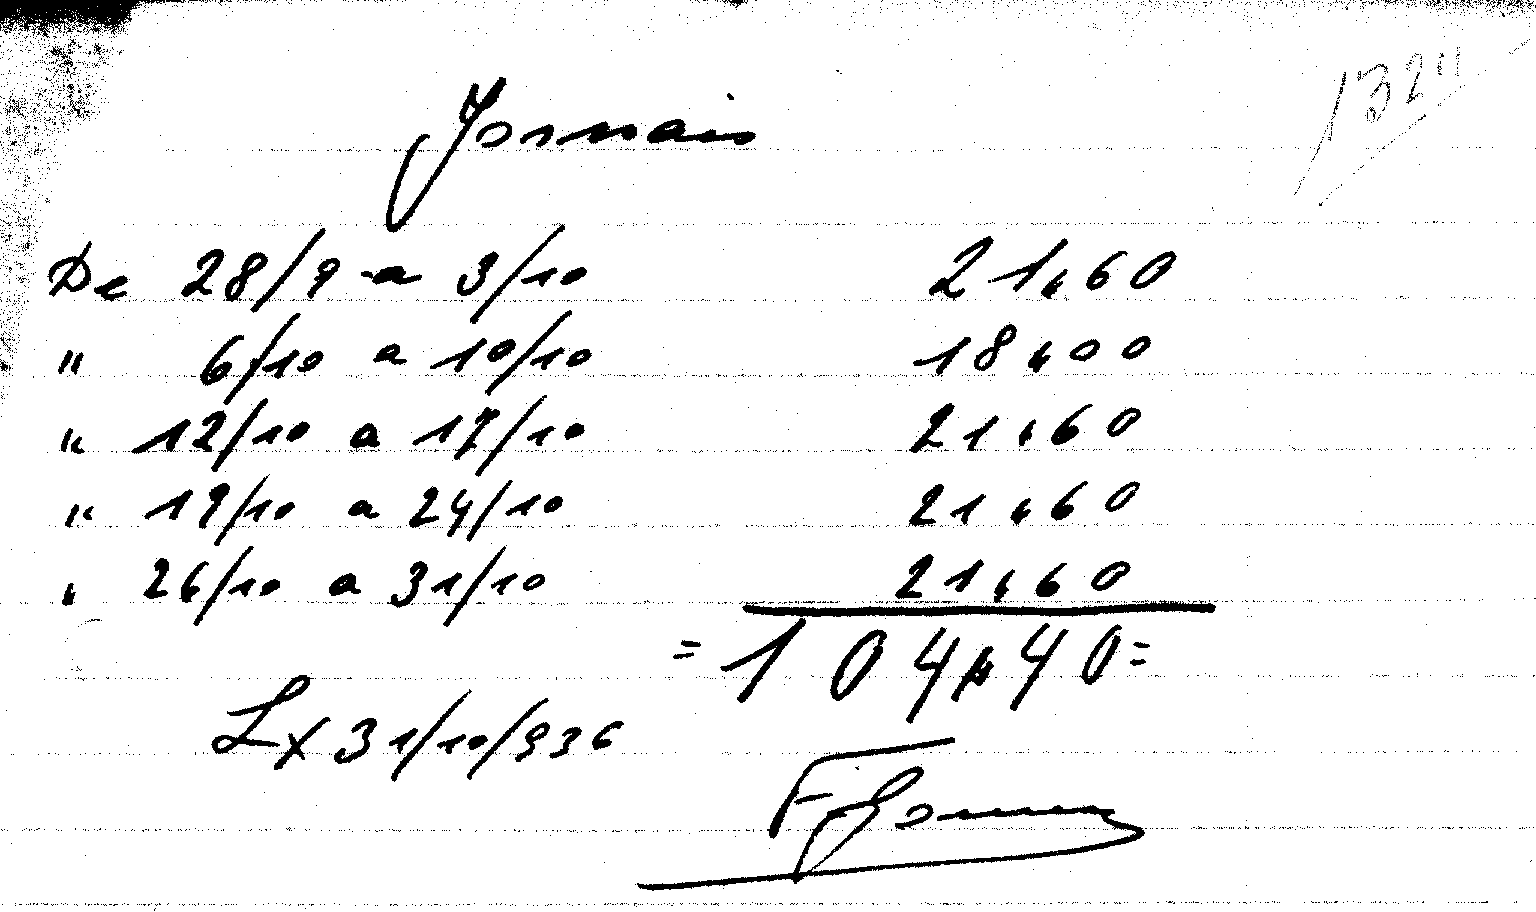 132"
Jornais
De 28/9 a 3/10 21,60
" 6/10 a 10/10 18,00
" 12/10 a 17/10 21,60
" 19/10 a 24/10 21,60
" 26/10 a 31/10 21,60
= 104,40 =
Lx 31/10/936